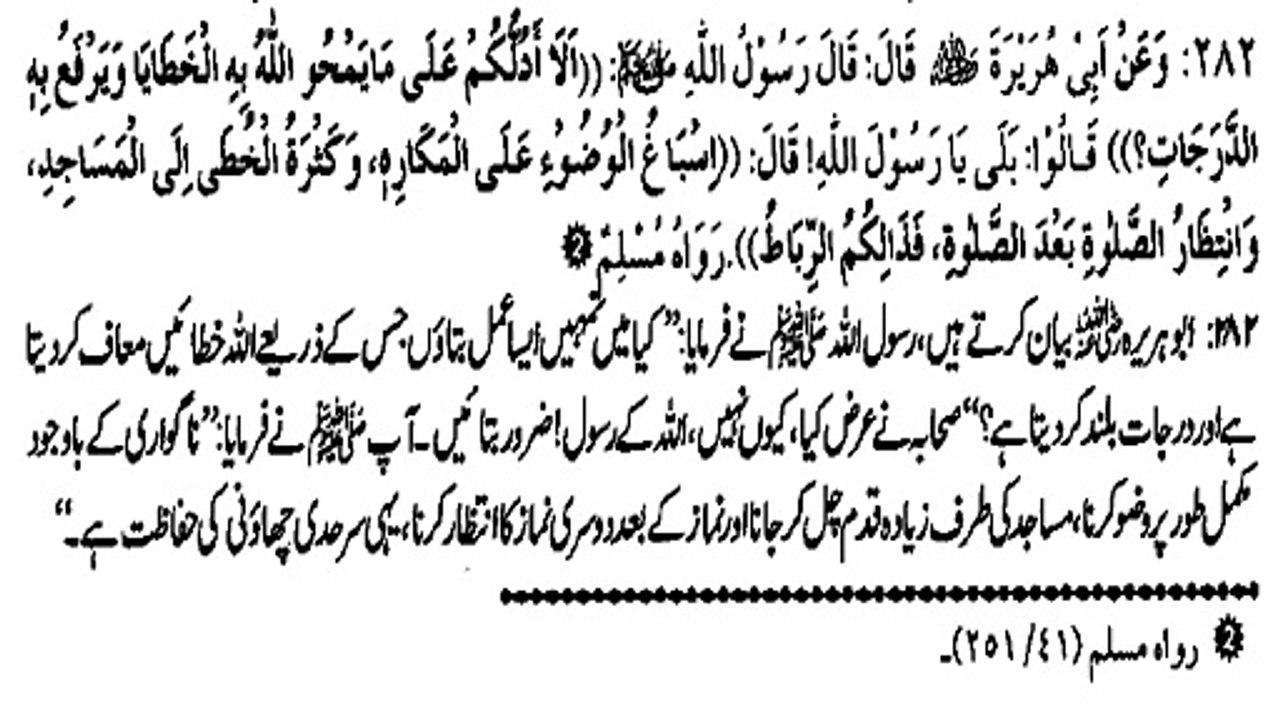 ٢٨٢: وَعَنْ اَبِيْ هُرَيْرَةَ رضی اللہ عنہ قَالَ: قَالَ رَسُوْلُ اللّٰهِ ﷺ: ((اَلَا أَدُلُّكُمْ عَلَى مَايَمْحُو اللّٰهُ بِهِ الْخَطَايَا وَيَرْفَعُ بِهِ
الدَّرَجَاتِ؟)) قَالُوْا: بَلَى يَا رَسُوْلَ اللّٰهِ! قَالَ: ((اِسْبَاغُ الْوُضُوْءِ عَلَى الْمَكَارِهِ، وَكَثْرَةُ الْخُطَى اِلَى الْمَسَاجِدِ،
وَانْتِظَارُ الصَّلٰوةِ بَعْدَ الصَّلٰوةِ، فَذٰلِكُمُ الرِّبَاطُ)). رَوَاهُ مُسْلِمٌ ❷
۲۸۲: ابو ہریرہ رضی اللہ عنہ بیان کرتے ہیں، رسول اللہ ﷺ نے فرمایا: ”کیا میں تمہیں ایسا عمل بتاؤں جس کے ذریعے اللہ خطائیں معاف کر دیتا
ہے اور درجات بلند کر دیتا ہے؟“ صحابہ نے عرض کیا، کیوں نہیں، اللہ کے رسول! ضرور بتائیں۔ آپ ﷺ نے فرمایا: ”ناگواری کے باوجود
مکمل طور پر وضو کرنا، مساجد کی طرف زیادہ قدم چل کر جانا اور نماز کے بعد دوسری نماز کا انتظار کرنا، یہی سرحدی چھاؤنی کی حفاظت ہے۔“
❷ رواه مسلم (٤١/ ٢٥١)۔